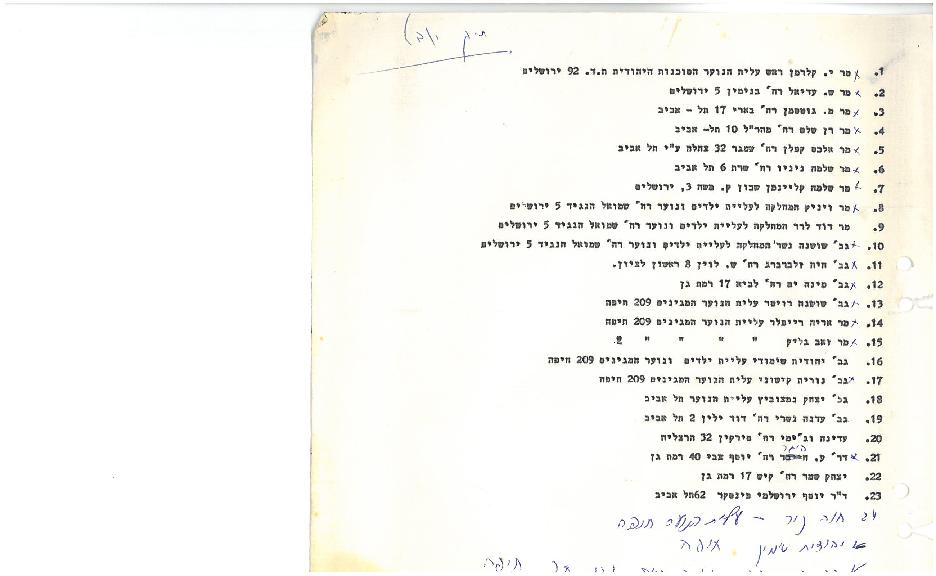 תיק יובל
1. מר י. קלרמן ראש עלית הנוער הסוכנות היהודית ת.ד. 92 ירושלים
2. מר ש. עדיאל רח' בנימין 5 ירושלים
3. מר מ. גוטסמן רח' בארי 17 תל - אביב
4. מר רן שלם רח' מהר"ל 10 תל- אביב
5. מר אלכס קפלן רח' שמגר 32 צהלה ע"י תל אביב
6. מר שלמה ניניו רח' שרת 6 תל אביב
7. מר שלמה קליינמן שכון ק. משה 3, ירושלים
8. מר ויניק המחלקה לעליית ילדים ונוער רח' שמואל הנגיד 5 ירושלים
9. מר דוד לדר המחלקה לעליית ילדים ונוער רח' שמואל הנגיד 5 ירושלים
10. גב' שושנה נשר המחלקה לעליית ילדים ונוער רח' שמואל הנגיד 5 ירושלים
11. גב' חיה זלברברג רח' ש. לוין 8 ראשון לציון.
12. גב' פינה ים רח' לביא 17 רמת גן
13. גב' שושנה רויטר עלית הנוער המגינים 209 חיפה
14. מר אריה רייפלר עליית הנוער המגינים 209 חיפה
15. מר זאב גליק " " " "
16. גב' יהודית שימודי עליית ילדים ונוער המגינים 209 חיפה
17. גב' נורית קישוני עלית הנוער המגינים 209 חיפה
18. גב' יצחק נמצוביץ עליית הנוער תל אביב
19. גב' עדנה נשרי רח' דוד ילין 2 תל אביב
20. עדינה וג'ימי רח' מירקין 32 הרצליה
21. דר' ע. רח' יוסף צבי 40 רמת גן
22. יצחק שמר רח' קיש 17 רמת גן
23. ד"ר יוסף ירושלמי פינסקר 62 תל אביב
24 חוה - עלית הנוער חיפה
יהודית חיפה
חיפה